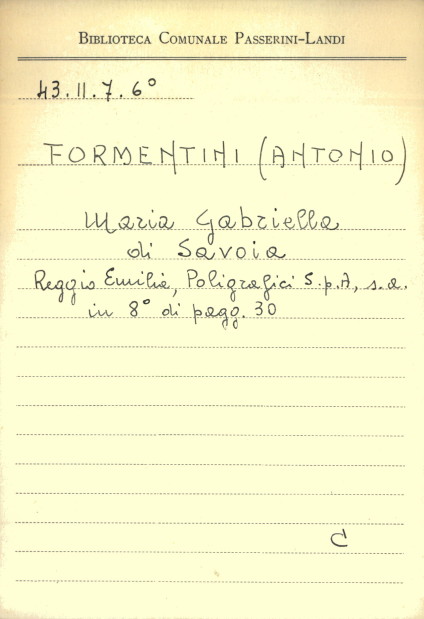 Biblioteca Comunale Passerini-Landi
43.II.7.6°
FORMENTINI (ANTONIO)
Maria Gabriella
di Savoia
Reggio Emilia, Poligrafici S.p.A, s.a.
in 8° di pagg. 30
C